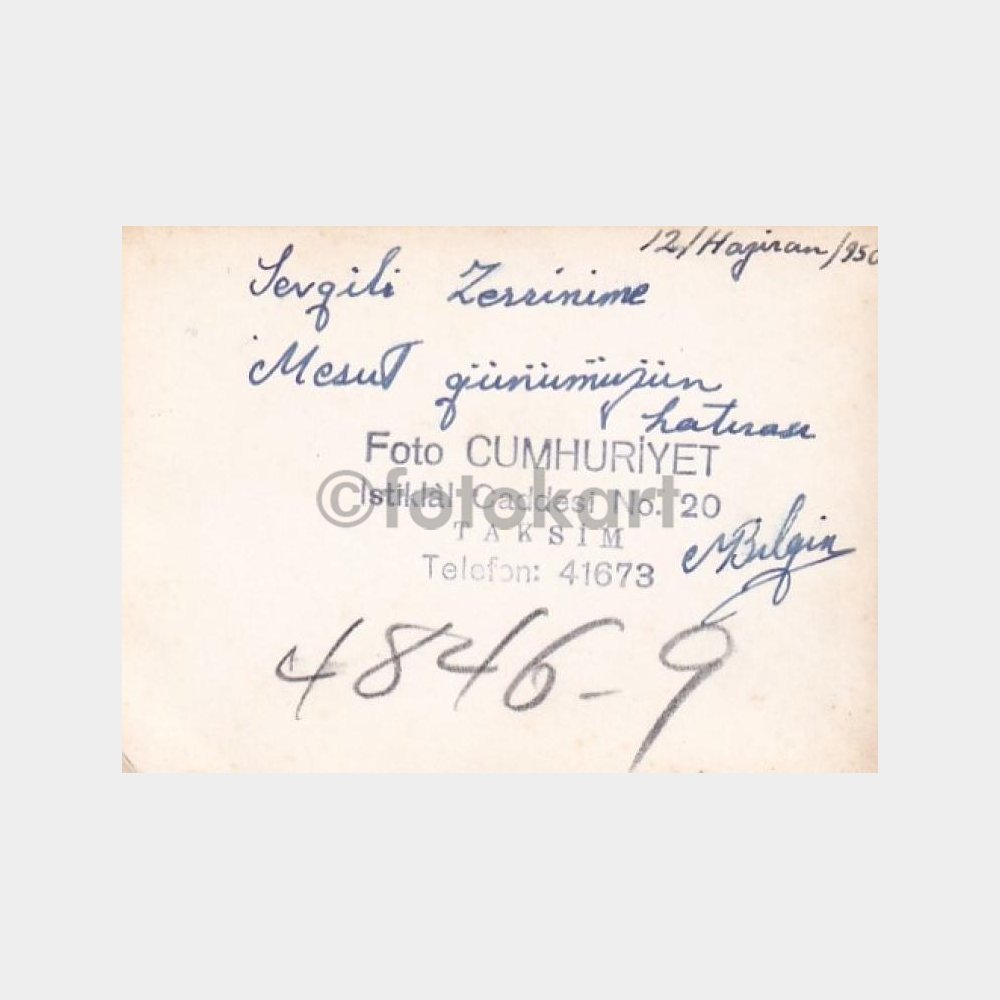 12/Haziran/950
Sevgili Zerrinime
Mesut günümüzün
hatırası
Foto CUMHURİYET
İstiklâl Caddesi No. 20
©fotokart
TAKSİM
MBilgin
Telefon: 41673
4846-9